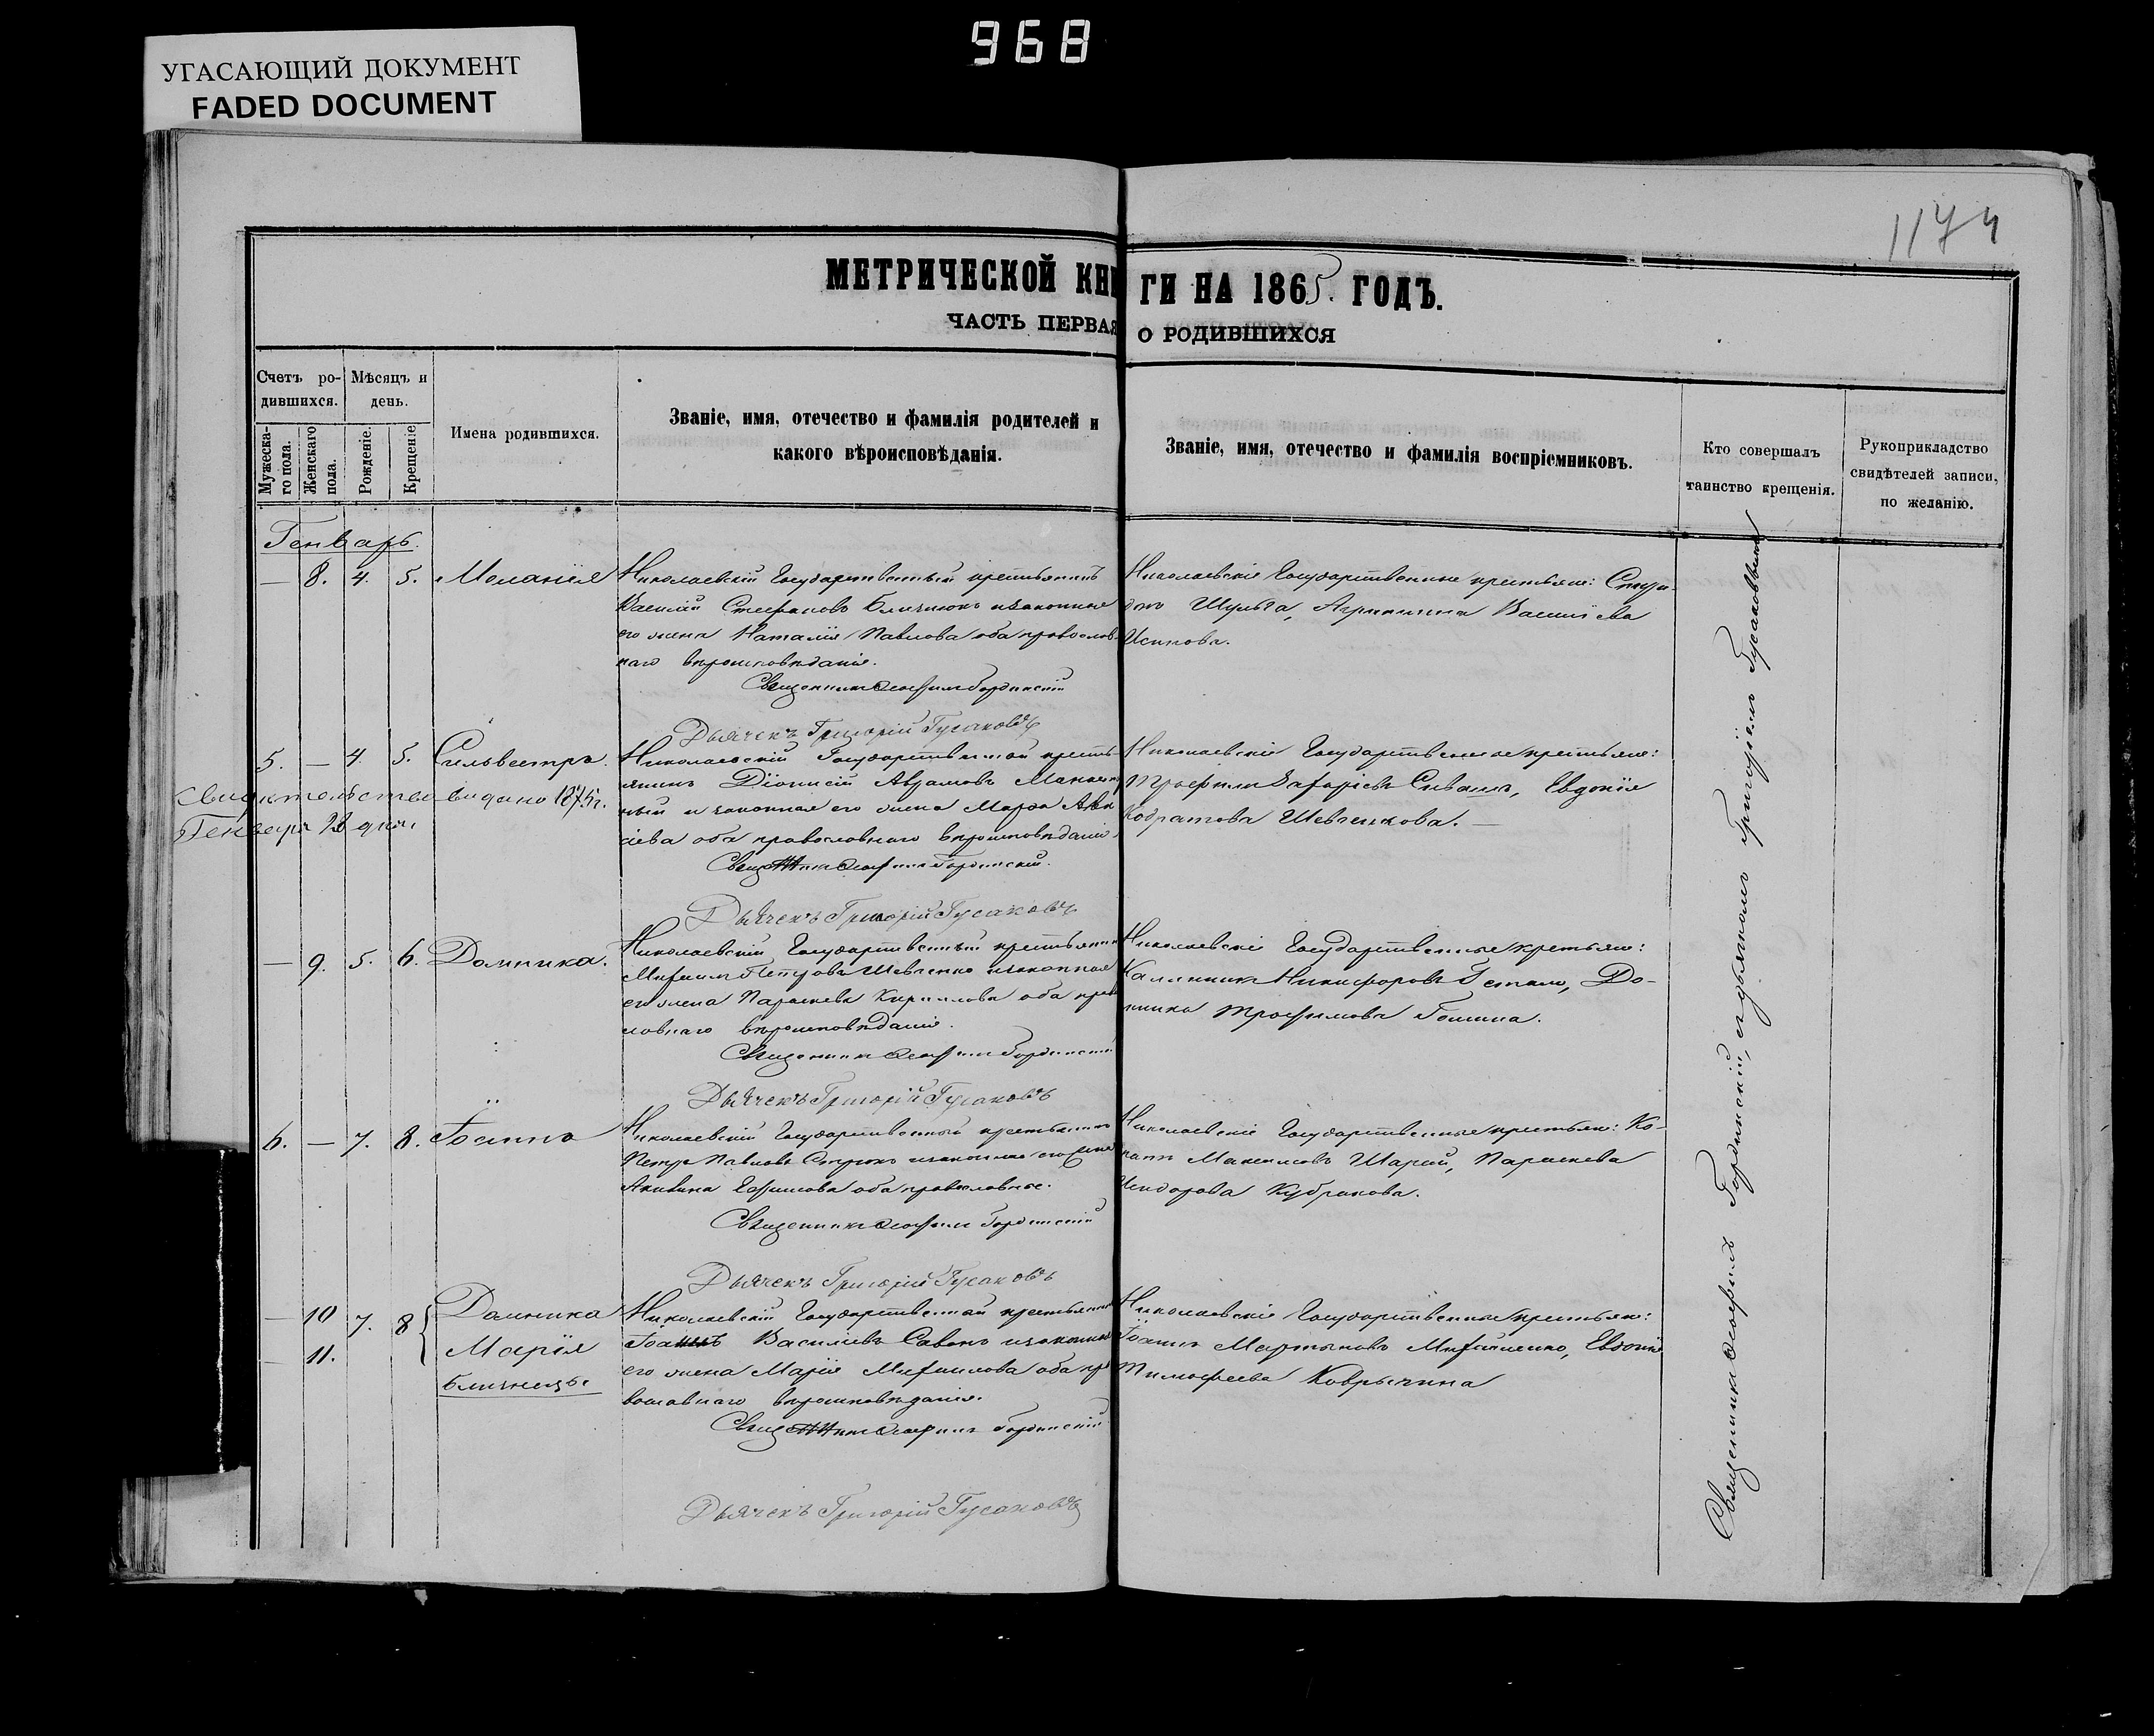 968
УГАСАЮЩИЙ ДОКУМЕНТ
FADED DOCUMENT
1174
МЕТРИЧЕСКОЙ КНИГИ НА 1865. ГОДЪ.
ЧАСТЬ ПЕРВАЯ О РОДИВШИХСЯ
Счетъ ро-
дившихся.
Мужеска-
го пола.
Женскаго
пола.
Мѣсяцъ и
день.
Рожденіе.
Крещеніе
Имена родившихся.
Званіе, имя, отечество и фамилія родителей и
какого вѣроисповѣданія.
Званіе, имя, отечество и фамилія воспріемниковъ.
Кто совершалъ
таинство крещенія.
Рукоприкладство
свидѣтелей записи,
по желанію.
Генварь.
— 8. 4. 5. Меланія
Николаевскій Государственный крестьянинъ
Василій Стефановъ и законная
его жена Наталія Павлова оба православ-
наго вѣроисповѣданія.
Священникъ
Дьячекъ Григорій Гусаковъ
Николаевскіе Государственные крестьяне: Спири-
донъ Шульга, Агрипина Василіева
5. — 4. 5. Сильвестръ.
свидѣтельство видано 1875г.
Генваря дня
Николаевскій Государственный кресть-
янинъ Діонисій Авраамовъ
и законная его жена Марѳа
оба православнаго вѣроисповѣданія
Дьячекъ Григорій Гусаковъ
Николаевскіе Государственные крестьяне:
Трофимъ Захаріевъ Сивашъ, Евдокія
Кодратова Шевченкова. —
— 9. 5. 6. Домника.
Николаевскій Государственный крестьянинъ
Михаилъ Петровъ Шевченко и законная
его жена Параскева Кириллова оба право
славнаго вѣроисповѣданія.
Священникъ
Дьячекъ Григорій Гусаковъ
Николаевскіе Государственные крестьяне:
Калинникъ Никифоровъ До-
мника Трофимова
6. — 7. 8. Іоаннъ
Николаевскій Государственный крестьянинъ
Петръ Павловъ и законная его жена
Акилина Ефимова оба православные.
Священникъ
Дьячекъ Григорій Гусаковъ
Николаевскіе Государственные крестьяне: Ко-
нонъ Максимовъ Шарий, Параскева
Исидорова Кубракова.
— 10 7. 8 Домника
— 11. Марія
близнецы
Николаевскій Государственный крестьянинъ
Іоаннъ Василіевъ Савонъ и законная
его жена Марія Михаилова оба пра
вославнаго вѣроисповѣданія.
Дьячекъ Григорій Гусаковъ
Николаевскіе Государственные крестьяне:
Іоаннъ Мартыновъ Михайленко, Евдокія
Тимофеева
Священникъ Гординскій, съ дьячкомъ Григоріемъ Гусаковымъ